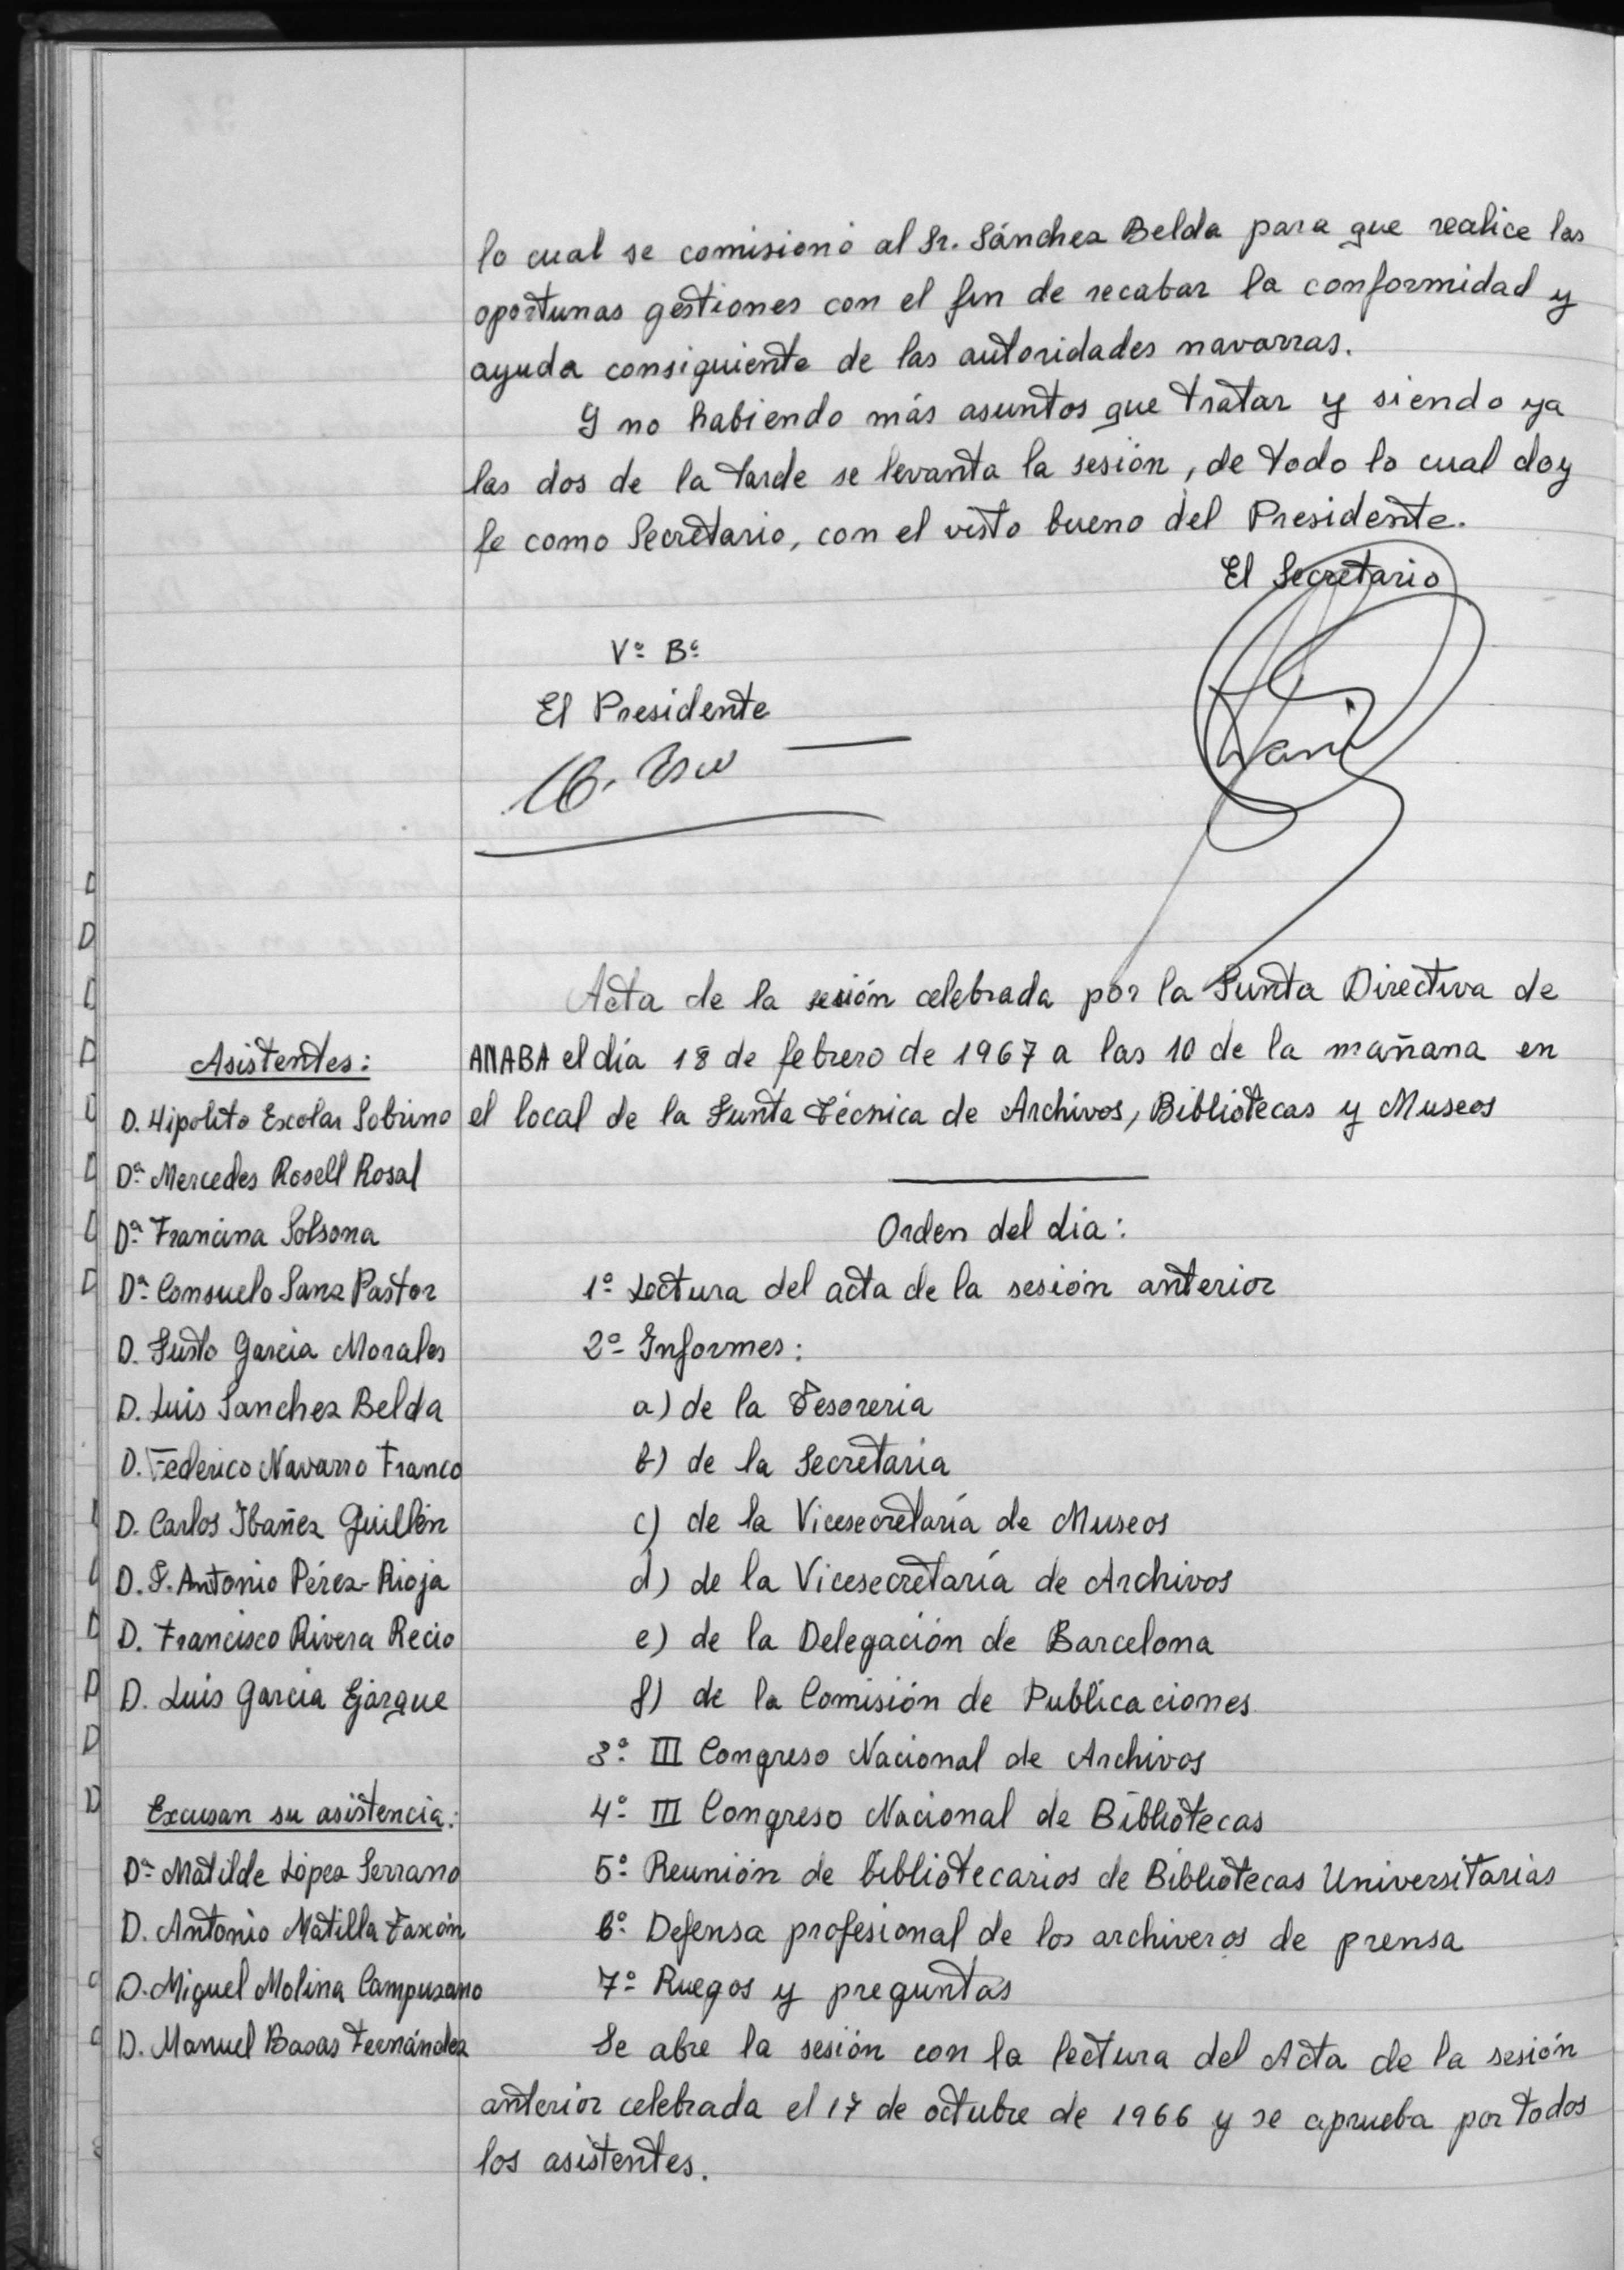 lo cual se comisionó al Sr. Sánchez Belda para que realice las
oportunas gestiones con el fin de recabar la conformidad y
ayuda consiguiente de las autoridades navarras.
Y no habiendo más asuntos que tratar y siendo ya
las dos de la tarde se levanta la sesión, de todo lo cual doy
fe como Secretario, con el visto bueno del Presidente.
El Secretario
Vº Bº
El Presidente
Acta de la sesión celebrada por la Junta Directiva de
ANABA el día 18 de febrero de 1967 a las 10 de la mañana en
el local de la Junta Técnica de Archivos, Bibliotecas y Museos
Asistentes:
D. Hipolito Escolar Sobrino
Dª Mercedes Rosell Rosal
Dª Francina Solsona
Dª Consuelo Sanz Pastor
D. Justo Garcia Morales
D. Luis Sanchez Belda
D. Federico Navarro Franco
D. Carlos Ibañez Guillén
D. J. Antonio Pérez-Rioja
D. Francisco Rivera Recio
D. Luis Garcia Ejarque
Excusan su asistencia:
Dª Matilde López Serrano
D. Antonio Matilla Tascón
D. Miguel Molina Campuzano
D. Manuel Basas Fernández
Orden del dia:
1º Lectura del acta de la sesión anterior
2º Informes:
a) de la Tesoreria
b) de la Secretaria
c) de la Vicesecretaría de Museos
d) de la Vicesecretaría de Archivos
e) de la Delegación de Barcelona
f) de la Comisión de Publicaciones
3º III Congreso Nacional de Archivos
4º III Congreso Nacional de Bibliotecas
5º Reunión de bibliotecarios de Bibliotecas Universitarias
6º Defensa profesional de los archiveros de prensa
7º Ruegos y preguntas
Se abre la sesión con la lectura del Acta de la sesión
anterior celebrada el 17 de octubre de 1966 y se aprueba por todos
los asistentes.